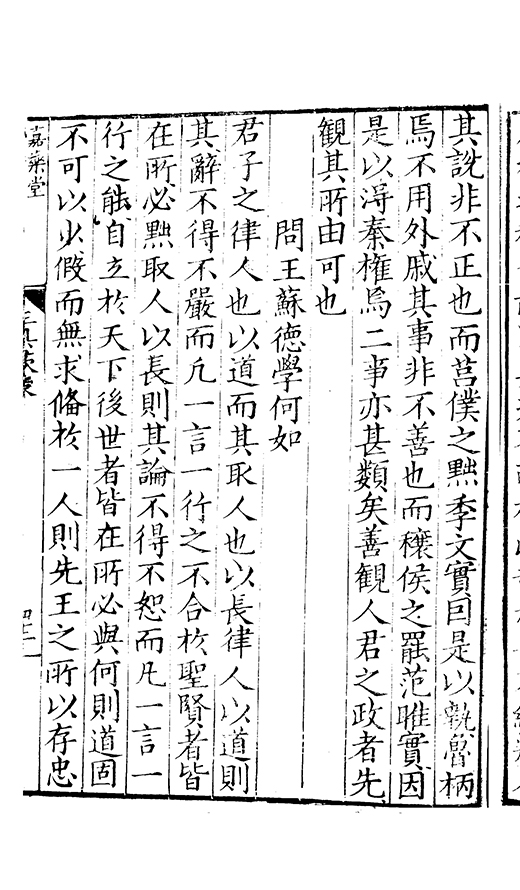 其說非不正也而莒僕之黜季文實囙是以執魯柄
焉不用外戚其事非不善也而穰侯之罷范睢實因
是以淂秦權焉二事亦甚類矣善観人君之政者先
観其所由可也
問王蘇德學何如
君子之律人也以道而其取人也以長律人以道則
其辭不得不嚴而凡一言一行之不合於聖賢者皆
在所必黜取人以長則其論不得不恕而凡一言一
行之能自立於天下後世者皆在所必與何則道固
不可以少假而無求俻於一人則先王之所以存忠
嘉藥堂